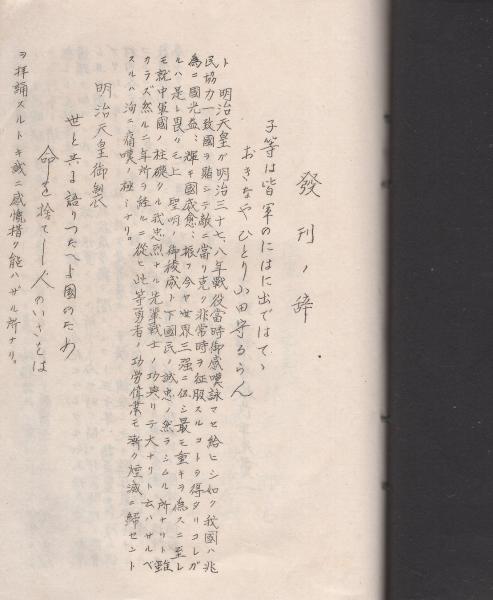 發刊ノ辞
子等は皆軍のにはに出ではてゝ
おきなやひとり山田守るらん
ト 明治天皇ガ明治三十七、八年戰役當時御感嘆詠マセ給ヒシ如ク我國ハ兆
民協力一致國ヲ賭シテ敵ニ當リ克ク非常時ヲ征服スルコトヲ得タリコレガ
為ニ國光益々輝キ國威愈々振フ今ヤ世界三强ニ伍シ最モ重キヲ為スニ至レ
ルハ是レ畏クモ上 聖明ノ御稜威ト下國民ノ誠忠ノ然ラシムル所ナリト雖
モ就中軍國ノ柱礎タル我忠烈ナル先輩戰士ノ功與リテ大ナリト云ハザルベ
カラズ然ルニ年所ヲ経ルニ從ヒ此等勇者ノ功労偉業モ漸ク煙滅ニ歸セント
スルハ洵ニ痛嘆ノ極ミナリ。
明治天皇御製
世と共に語りつたへよ國のため
命を捨てし人のいさをは
ヲ拝誦スルトキ誠ニ感慨措ク能ハザル所ナリ。